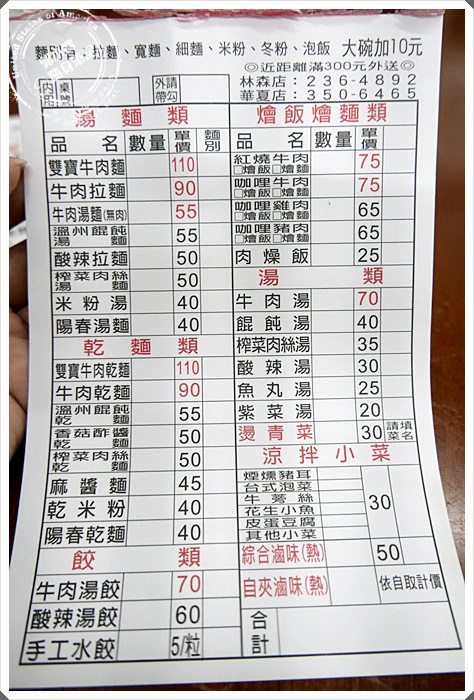 United States of America
麵別有：拉麵、寬麵、細麵、米粉、冬粉、泡飯 大碗加10元
◎近距離滿300元外送◎
內用 桌號 外帶 請勾
林森店：236-4892
華夏店：350-6465
湯麵類
品名 數量 單價 麵別
雙寶牛肉麵 110
牛肉拉麵 90
牛肉湯麵(無肉) 55
溫州餛飩湯麵 55
酸辣拉麵 50
榨菜肉絲湯麵 50
米粉湯 40
陽春湯麵 40
乾麵類
雙寶牛肉乾麵 110
牛肉乾麵 90
溫州餛飩乾麵 55
香菇酢醬乾麵 50
榨菜肉絲乾麵 50
麻醬麵 45
乾米粉 40
陽春乾麵 40
餃類
牛肉湯餃 70
酸辣湯餃 60
手工水餃 5/粒
燴飯燴麵類
品名 數量 單價
紅燒牛肉 □燴飯□燴麵 75
咖哩牛肉 □燴飯□燴麵 75
咖哩雞肉 □燴飯□燴麵 65
咖哩豬肉 □燴飯□燴麵 65
肉燥飯 25
湯類
牛肉湯 70
餛飩湯 40
榨菜肉絲湯 35
酸辣湯 30
魚丸湯 25
紫菜湯 20
燙青菜 30 請填菜名
涼拌小菜
煙燻豬耳
台式泡菜
牛蒡絲
花生小魚
皮蛋豆腐
其他小菜
30
綜合滷味(熱) 50
自夾滷味(熱) 依自取計價
合計